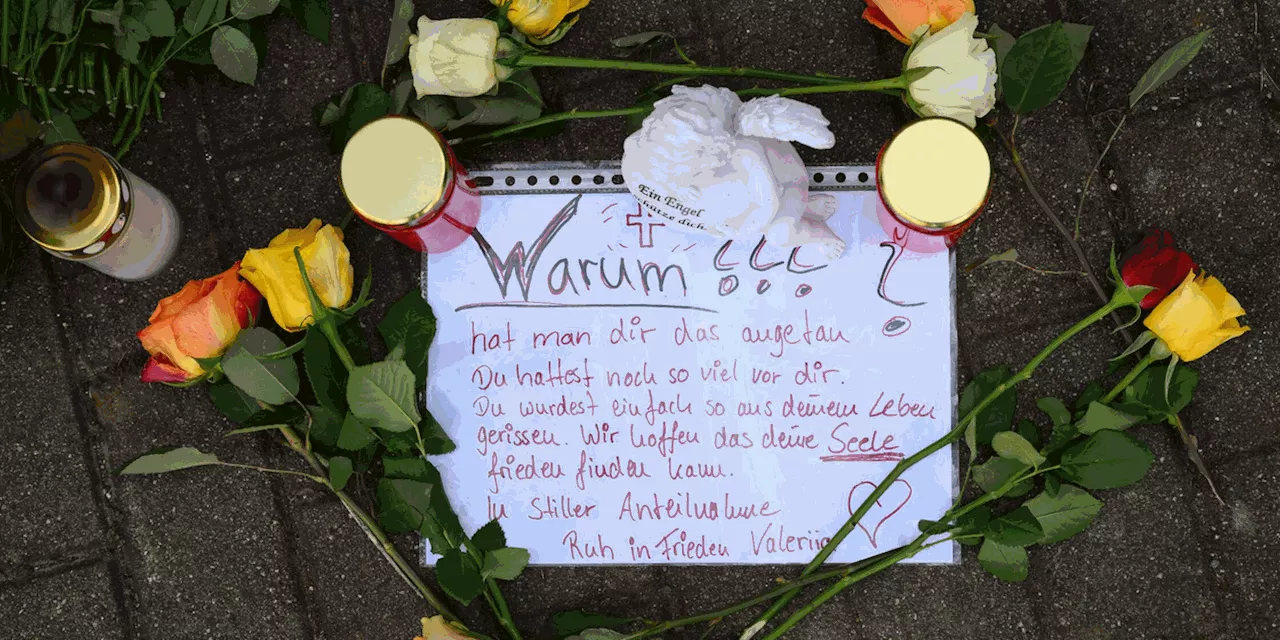 Ein Engel
schütze dich.
Warum ??? ?
hat man dir das angetan
Du hattest noch so viel vor dir.
Du wurdest einfach so aus deinem Leben
gerissen. Wir hoffen das deine Seele
frieden finden kann.
In Stiller Anteilnahme
Ruh in Frieden Valeriia